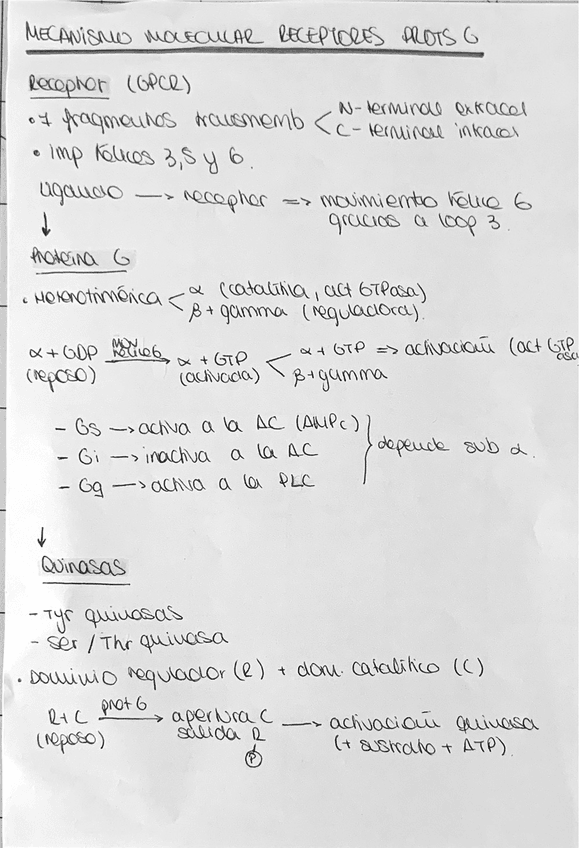 MECANISMO MOLECULAR RECEPTORES PROTS G
Receptor (GPCR)
• 7 fragmentos transmemb < N-terminal extracel
C-terminal intracel
• imp hélices 3, 5 y 6.
Ligando —> receptor => movimiento hélice 6
gracias a loop 3.
↓
Proteína G
• Heterotrimérica < α (catalítica, act GTPasa)
β + gamma (reguladora).
α + GDP —MOV hélice 6—> α + GTP < α + GTP => activación (act GTPasa
(reposo) (activada) β + gamma
- Gs —> activa a la AC (AMPc)
- Gi —> inactiva a la AC } depende sub α.
- Gq —> activa a la PLC
↓
Quinasas
- Tyr quinasas
- Ser / Thr quinasa
• Dominio regulador (R) + dom. catalítico (C)
R + C —prot G—> apertura C —> activación quinasa
(reposo) salida R (+ sustrato + ATP).
P